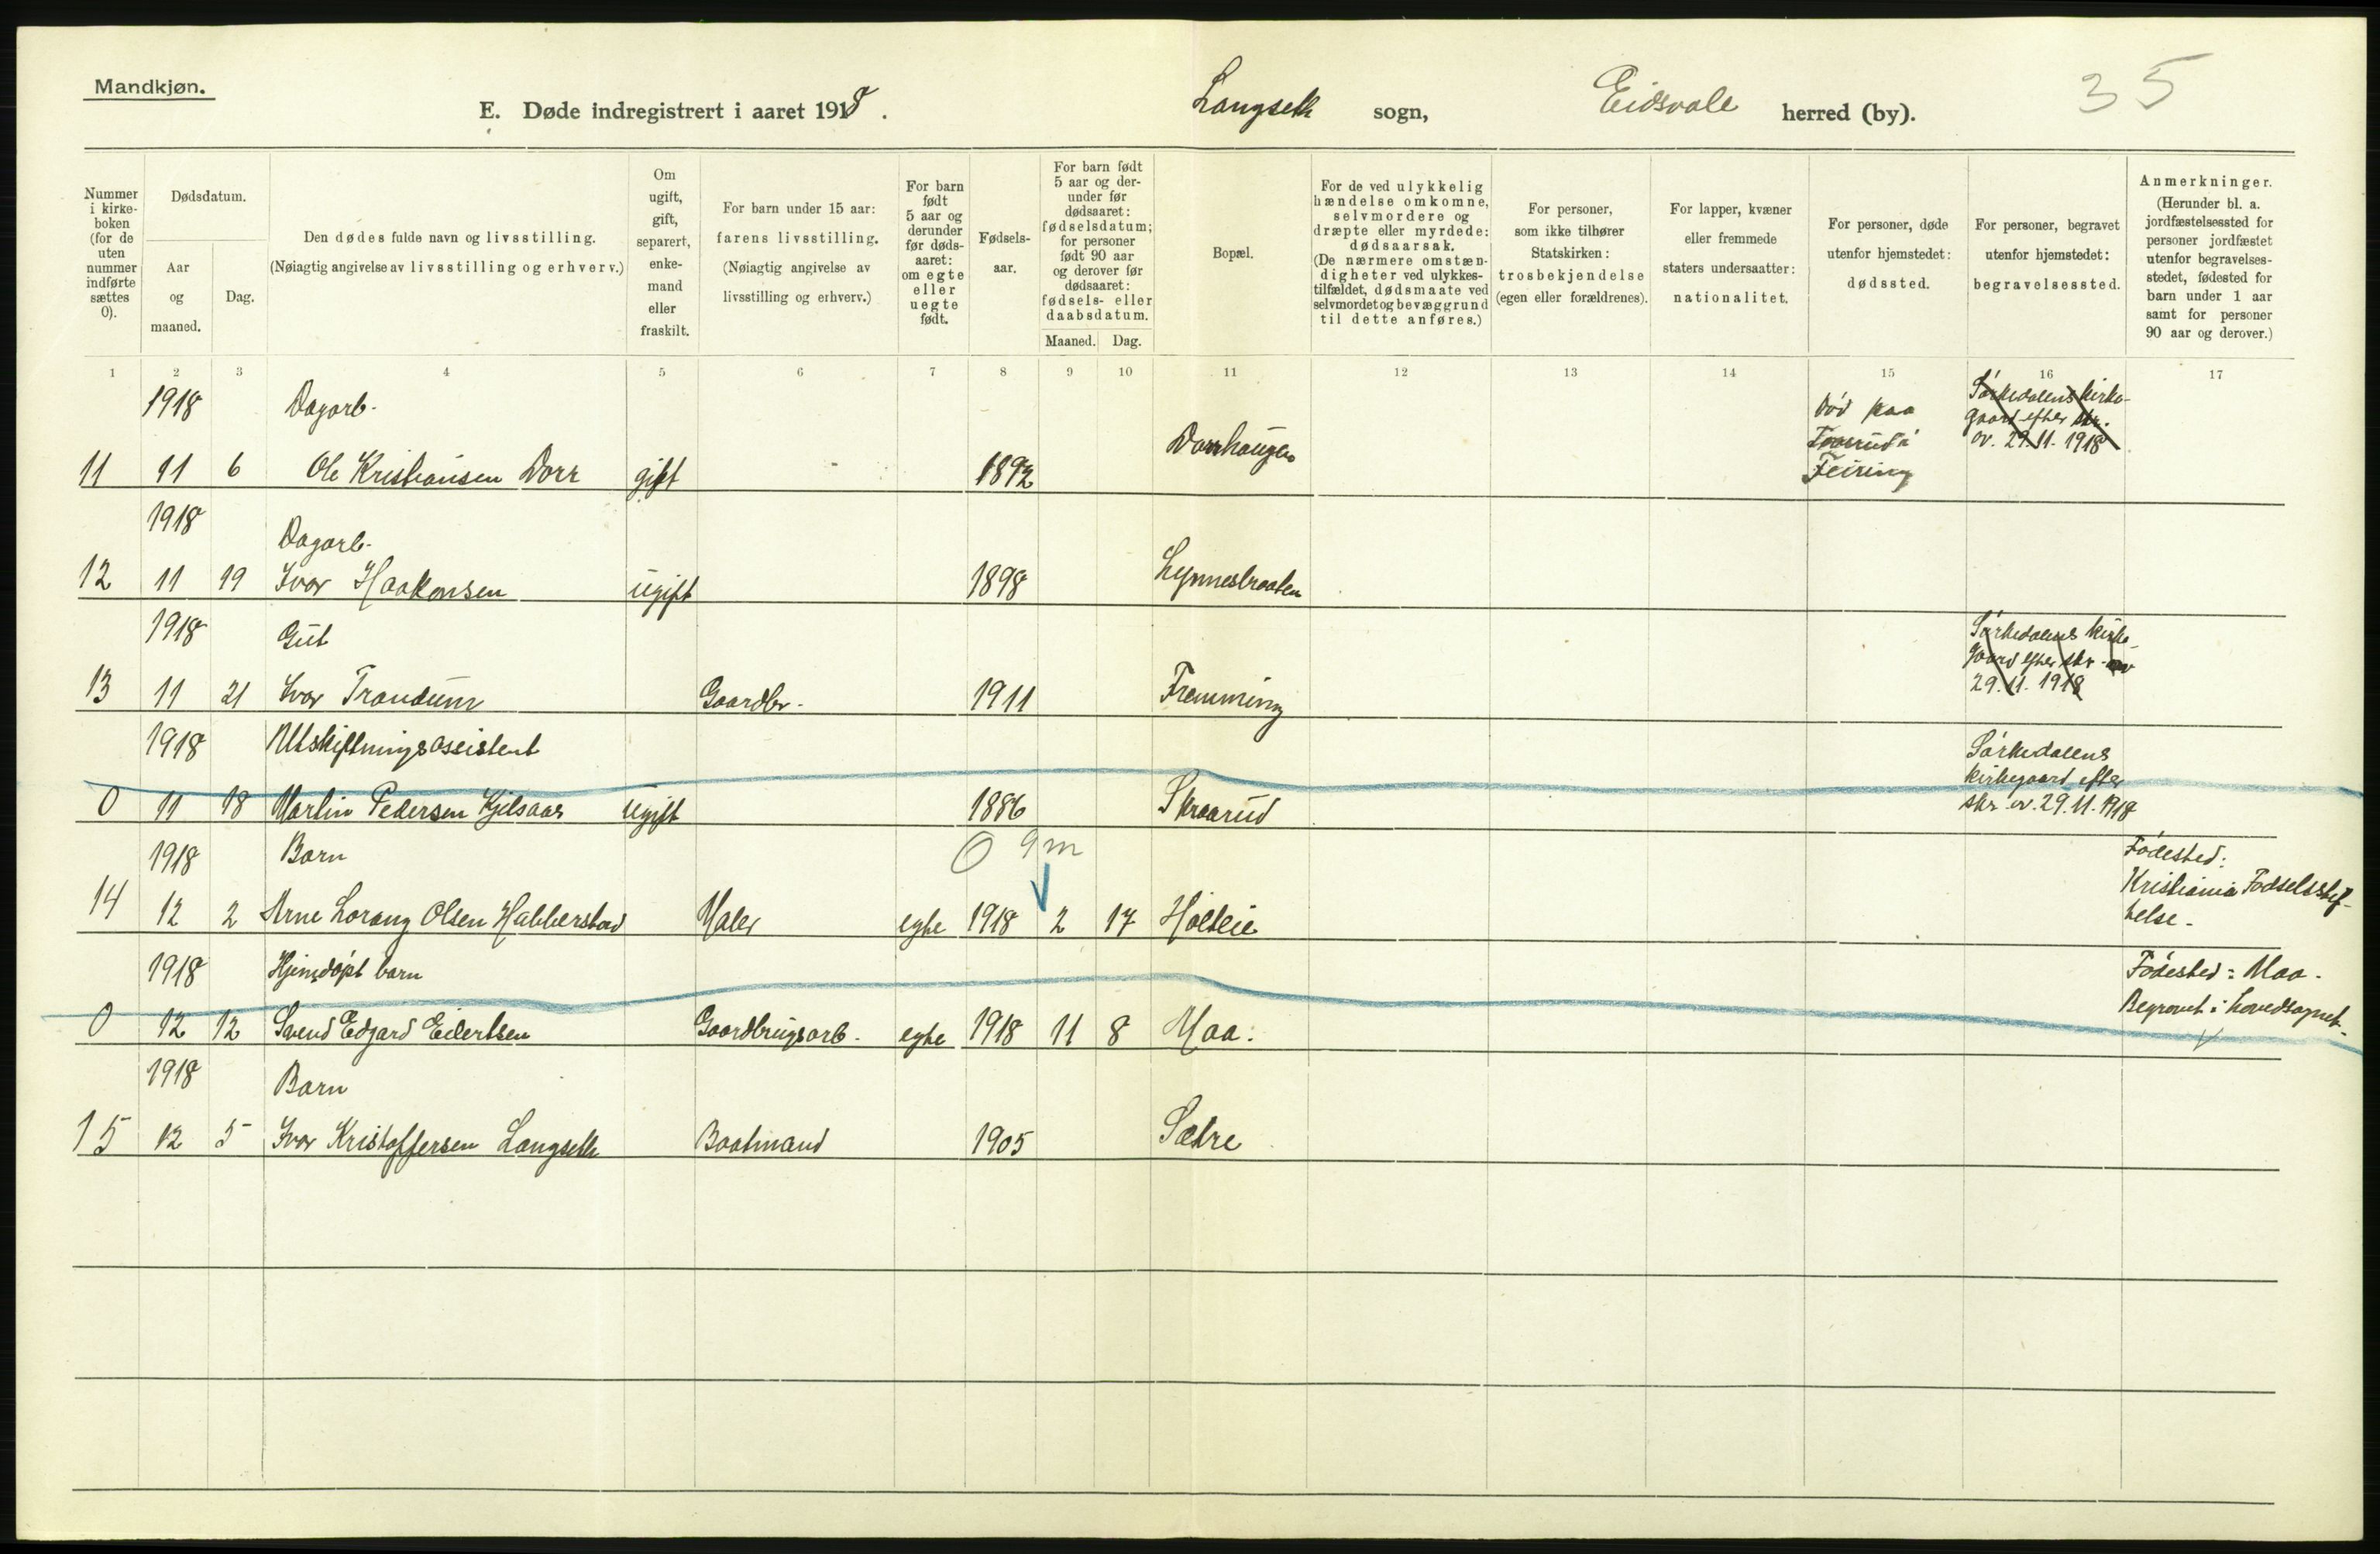 Mandkjøn.
E. Døde indregistrert i aaret 1918. Langseth sogn, Eidsvold herred (by). 35
Nummer i kirkeboken (for de uten nummer indførte sættes 0).
Dødsdatum.
Aar og maaned.
Dag.
Den dødes fulde navn og livsstilling.
(Nøiagtig angivelse av livsstilling og erhverv.)
Om ugift, gift, separert, enkemand eller fraskilt.
For barn under 15 aar:
farens livsstilling.
(Nøiagtig angivelse av
livsstilling og erhverv.)
For barn født 5 aar og derunder før dødsaaret: om egte eller uegte født.
Fødselsaar.
For barn født 5 aar og derunder før dødsaaret: fødselsdatum; for personer født 90 aar og derover før dødsaaret: fødsels- eller daabsdatum.
Maaned. Dag.
Bopæl.
For de ved ulykkelig hændelse omkomne, selvmordere og dræpte eller myrdede: dødsaarsak. (De nærmere omstændigheter ved ulykkestilfældet, dødsmaate ved selvmordet og bevæggrund til dette anføres.)
For personer, som ikke tilhører Statskirken: trosbekjendelse (egen eller forældrenes).
For lapper, kvæner eller fremmede staters undersaatter: nationalitet.
For personer, døde utenfor hjemstedet: dødssted.
For personer, begravet utenfor hjemstedet: begravelsessted.
Anmerkninger. (Herunder bl. a. jordfæstelsessted for personer jordfæstet utenfor begravelsesstedet, fødested for barn under 1 aar samt for personer 90 aar og derover.)
1 2 3 4 5 6 7 8 9 10 11 12 13 14 15 16 17
1918 Dagarb. Død paa Sørkedalens kirke-
gaard efter skr.
11 11 6 Ole Kristiansen Dorr gift 1892 Dorrhaugen Feiring av. 29.11.1918
1918 Dagarb.
12 11 19 Ivar Haakonsen ugift 1898 Lynnesbraaten
1918 Gut Sørkedalens kirke-
gaard efter skr. av
13 11 21 Ivar Trandum Gaardbr. 1911 Fremming 29.11.1918
1918 Utskiftningsassistent Sørkedalens
kirkegaard efter
0 11 18 Martin Pedersen Kjelsaas ugift 1886 Skraarud skr. av. 29.11.1918
1918 Barn 0 9 m Fødested:
Kristiania Fødselsstif-
14 12 2 Arne Lorang Olsen Habberstad Maler egte 1918 2 17 Holteie telse.
1918 Hjemdøpt barn Fødested: Maa.
0 12 12 Svend Edgard Eilertsen Gaardbrugsarb. egte 1918 11 8 Maa. Begravet i hovedsognet.
1918 Barn
15 12 5 Ivar Kristoffersen Langseth Baatmand 1905 Sætre